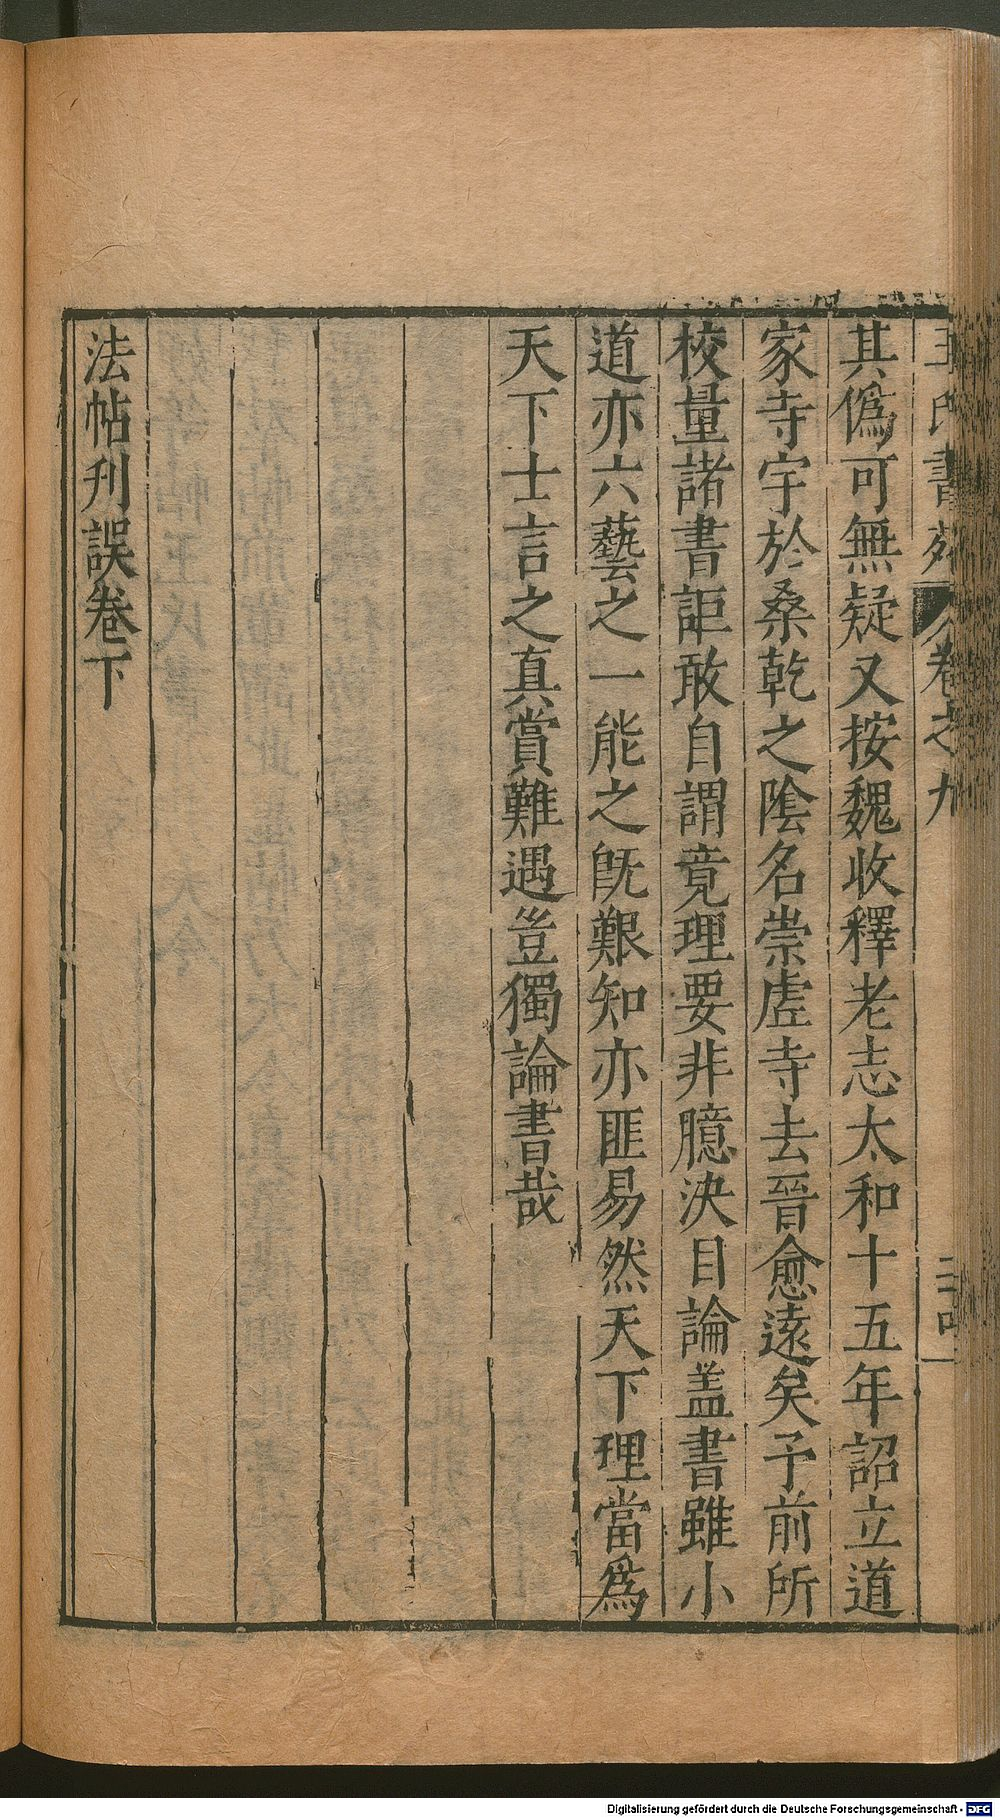 王氏書苑 卷之九 二十四
其僞可無疑又按魏收釋老志太和十五年詔立道
家寺宇於桑乾之陰名崇虛寺去晉愈遠矣予前所
校量諸書詎敢自謂竟理要非臆決目論盖書雖小
道亦六藝之一能之旣艱知亦匪易然天下理當爲
天下士言之真賞難遇豈獨論書哉
法帖刋誤卷下
Digitalisierung gefördert durch die Deutsche Forschungsgemeinschaft - DFG